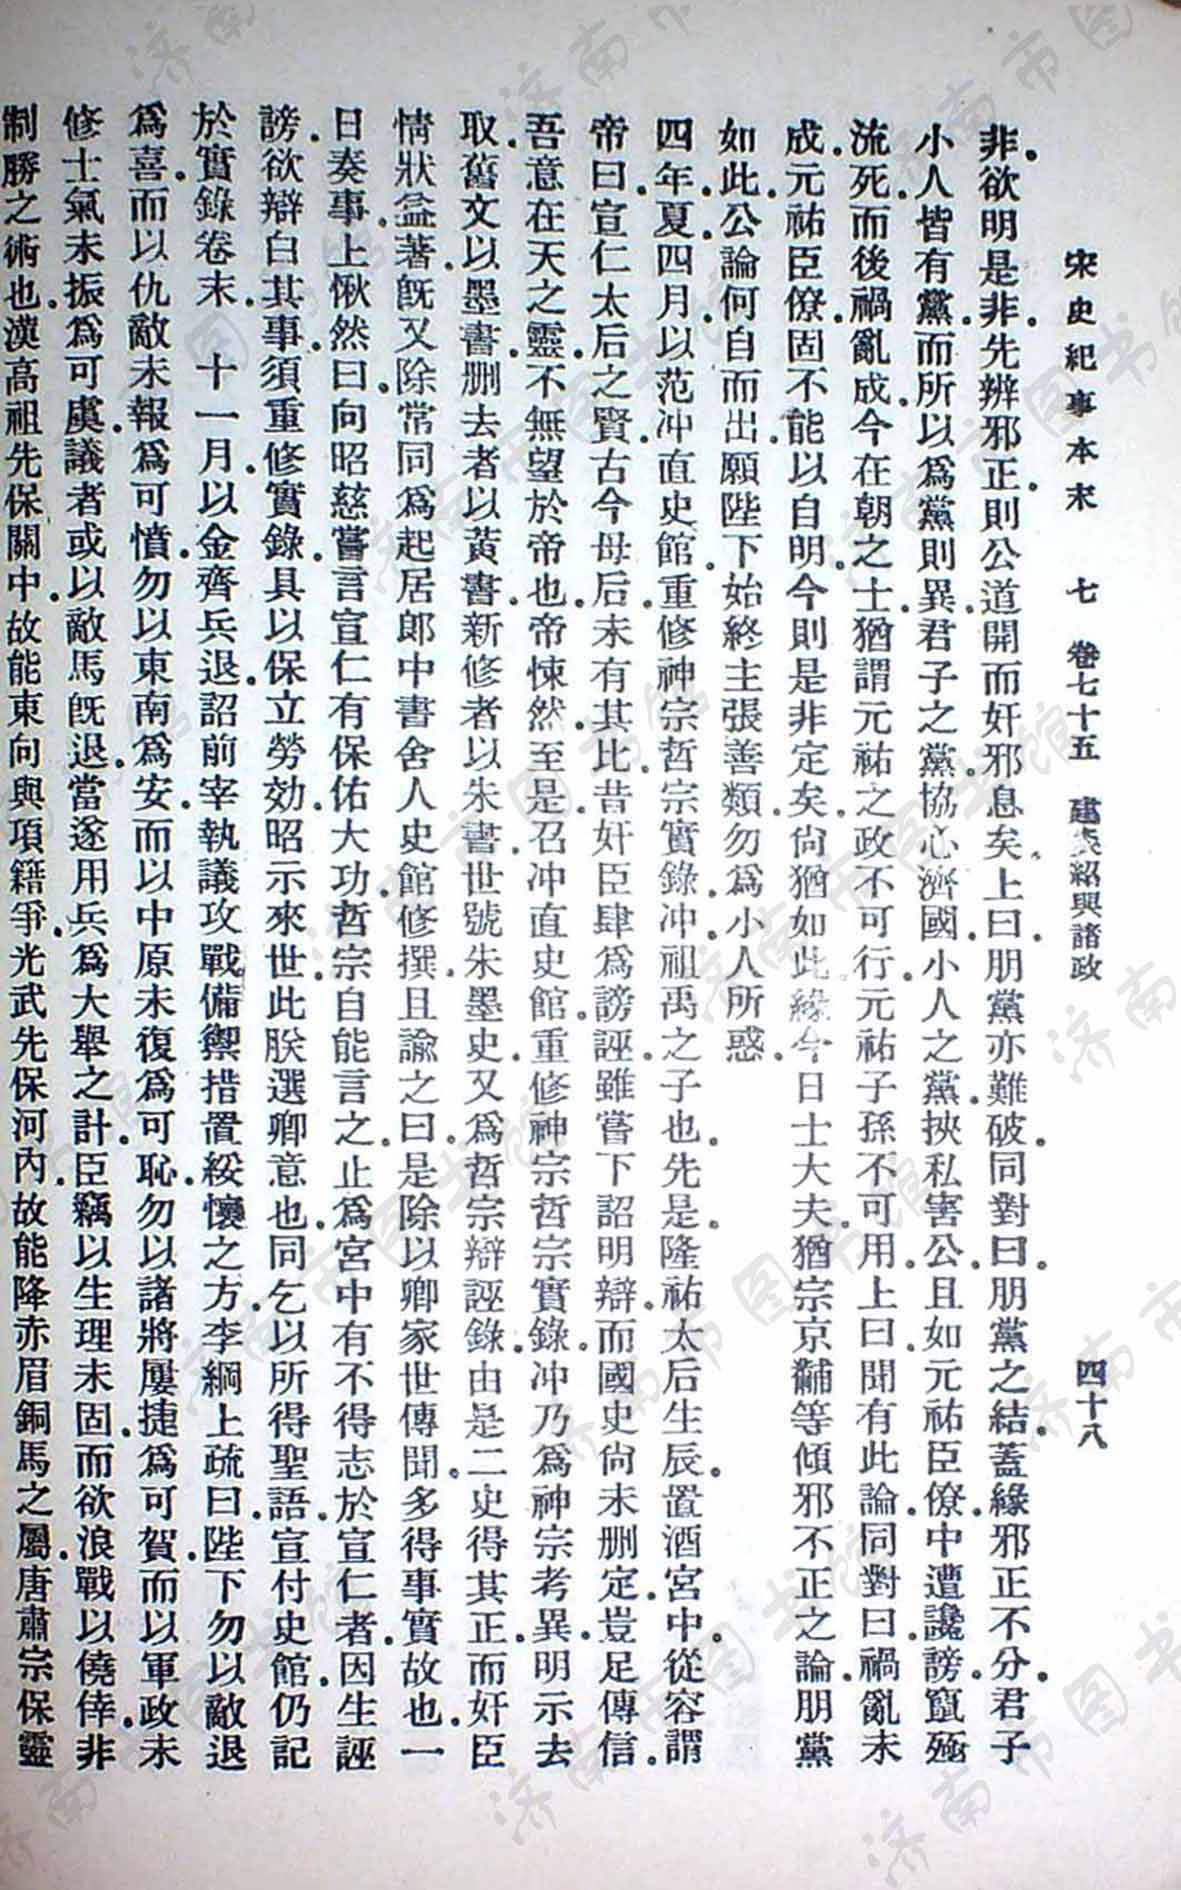 宋史紀事本末 七 卷七十五 建炎紹興諸政 四十八
非。欲明是非。先辨邪正。則公道開而奸邪息矣。上曰。朋黨亦難破。同對曰。朋黨之結。蓋緣邪正不分。君子
小人皆有黨。而所以爲黨則異。君子之黨。協心濟國。小人之黨。挾私害公。且如元祐臣僚。中遭讒謗。竄殛
流死。而後禍亂成。今在朝之士。猶謂元祐之政不可行。元祐子孫不可用。上曰。聞有此論。同對曰。禍亂未
成。元祐臣僚。固不能以自明。今則是非定矣。尙猶如此。緣今日士大夫。猶宗京黼等傾邪不正之論。朋黨
如此。公論何自而出。願陛下始終主張善類。勿爲小人所惑。
四年。夏。四月。以范冲直史館。重修神宗哲宗實錄。冲。祖禹之子也。先是。隆祐太后生辰。置酒宮中。從容謂
帝曰。宣仁太后之賢。古今母后。未有其比。昔奸臣肆爲謗誣。雖嘗下詔明辯。而國史尙未删定。豈足傳信。
吾意在天之靈。不無望於帝也。帝悚然。至是。召冲直史館。重修神宗哲宗實錄。冲乃爲神宗考異。明示去
取。舊文以墨書。删去者以黃書。新修者以朱書。世號朱墨史。又爲哲宗辯誣錄。由是二史得其正。而奸臣
情狀益著。旣又除常同爲起居郎中書舍人史館修撰。且諭之曰。是除以卿家世傳聞。多得事實故也。一
日奏事。上愀然曰。向昭慈嘗言宣仁有保佑大功。哲宗自能言之。止爲宮中有不得志於宣仁者。因生誣
謗。欲辯白其事。須重修實錄。具以保立勞効。昭示來世。此朕選卿意也。同乞以所得聖語。宣付史館。仍記
於實錄卷末。 十一月。以金齊兵退。詔前宰執議攻戰備禦措置綏懷之方。李綱上疏曰。陛下勿以敵退
爲喜。而以仇敵未報爲可憤。勿以東南爲安。而以中原未復爲可恥。勿以諸將屢捷爲可賀。而以軍政未
修士氣未振爲可虞。議者或以敵馬旣退。當遂用兵爲大舉之計。臣竊以生理未固。而欲浪戰以僥倖。非
制勝之術也。漢高祖先保關中。故能東向與項籍爭。光武先保河內。故能降赤眉銅馬之屬。唐肅宗保靈